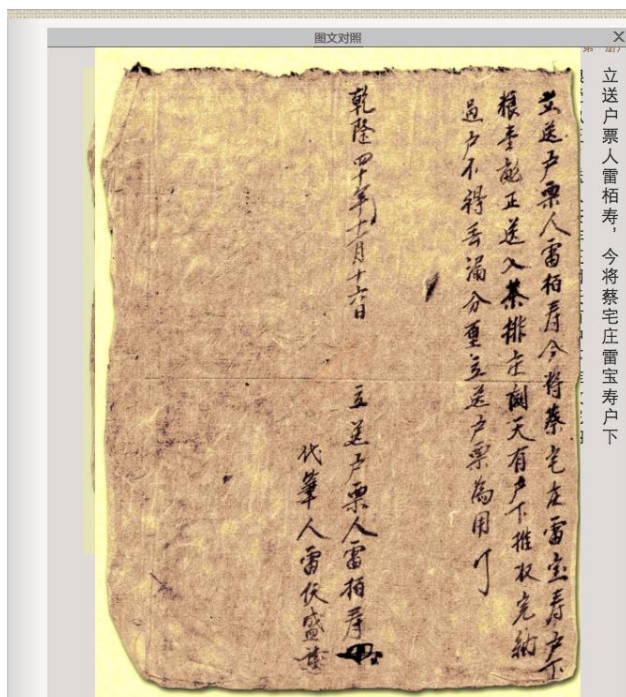 图文对照
立送户票人雷栢寿，今将蔡宅庄雷宝寿户下
立送户票人雷栢寿今将蔡宅庄雷宝寿户下
粮壹畝正送入茶排庄闕天有户下推收完納
過户不得丢漏分厘立送户票為用
乾隆四十年十一月十六日
立送户票人雷栢寿
代筆人雷伏盛